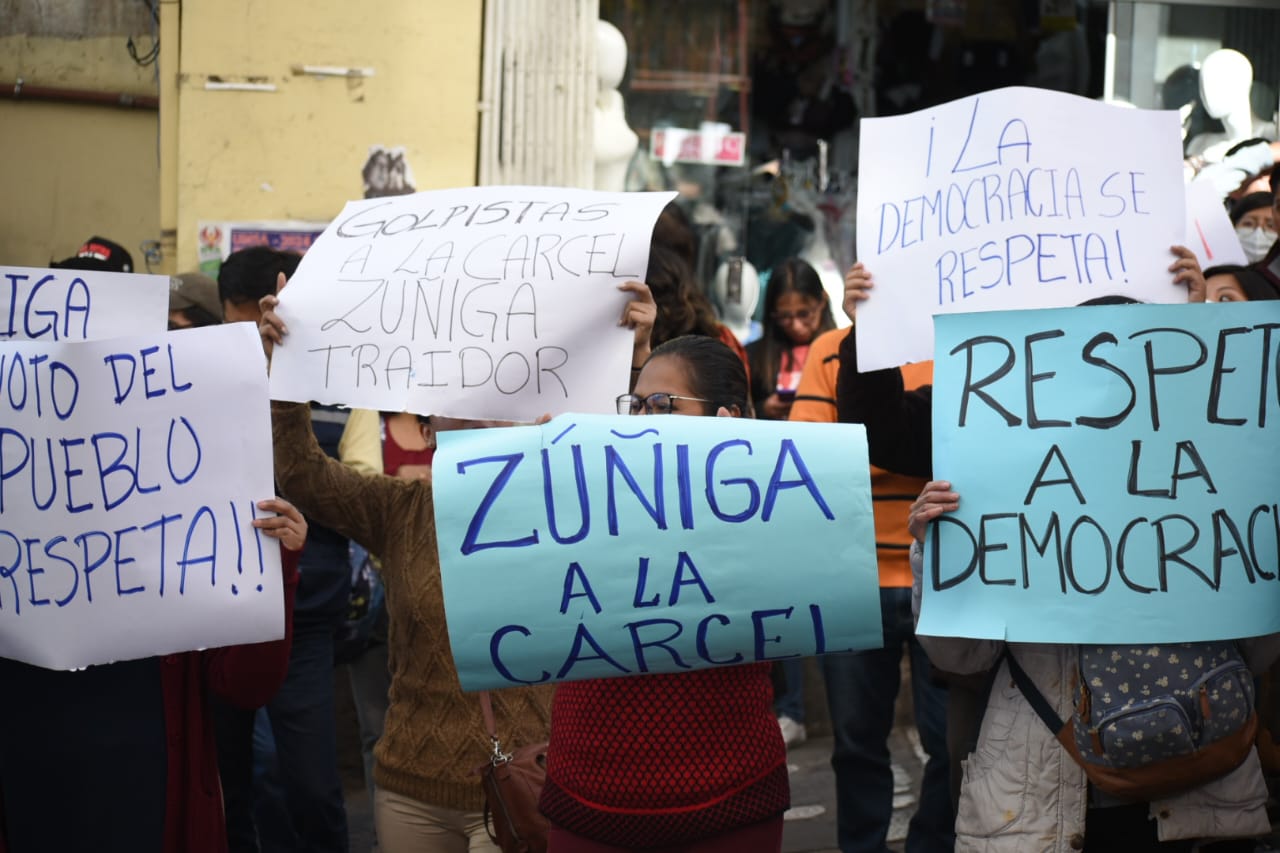 IGA
VOTO DEL
PUEBLO
RESPETA!!
GOLPISTAS
A LA CARCEL
ZUÑIGA
TRAIDOR
ZÚÑIGA
A LA
CÁRCEL
¡LA
DEMOCRACIA SE
RESPETA!
RESPETO
A LA
DEMOCRACI